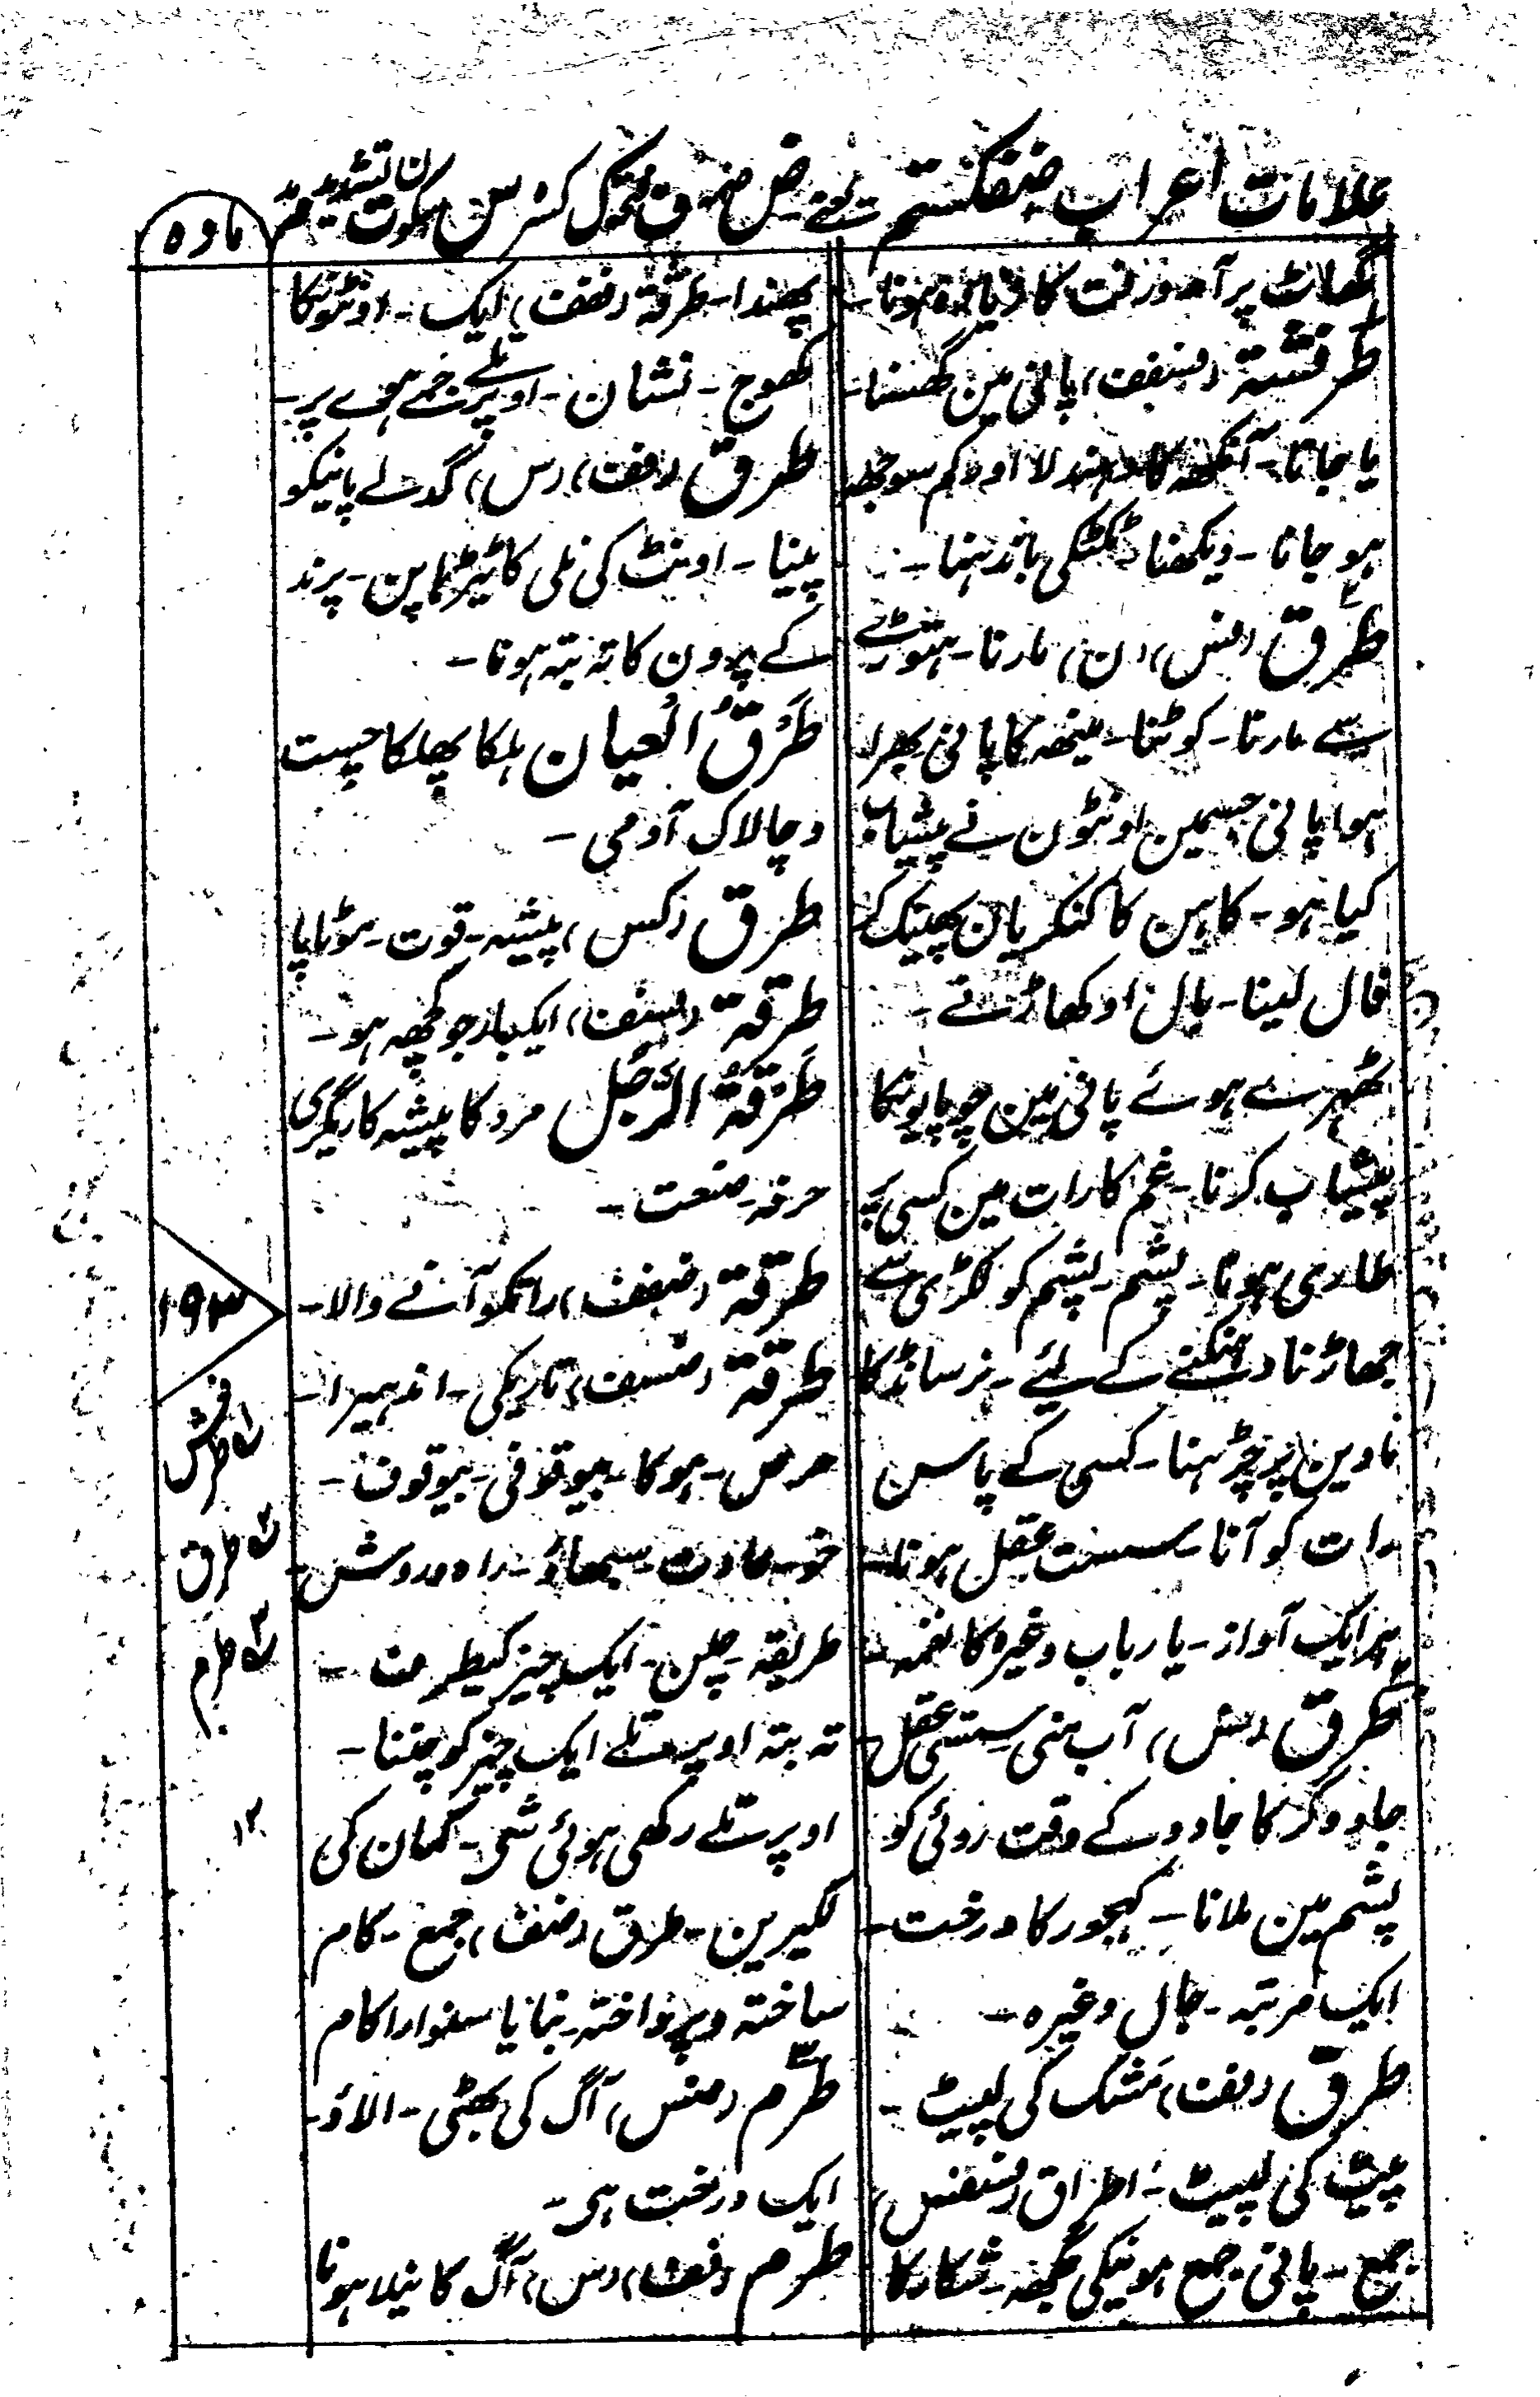 علامات اعراب ضفکستم ت فتحہ ض ضمہ ف ک کسرہ س سکون ت تشدید م مد
مادہ
گھاٹ پر آمدورفت کا زیادہ ہونا۔
طرفشة (فسفف) پانی مین گھسنا۔
یا جانا۔ آنکھہ کا دھندلا اور کم سوجھہ
ہو جانا۔ دیکھنا ٹکٹکی باندہنا۔
طرق (فس) (ن) مارنا۔ ہتوڑے
سے مارنا۔ کوٹنا۔ مینھہ کا پانی بھرا
ہوا پانی جسمین اونٹون نے پیشاب
کیا ہو۔ کاہن کا کنکریان پھینک کر
فال لینا۔ بال اوکھاڑنے۔
ٹھرے ہوئے پانی مین چوپایونکا
پیشاب کرنا۔ غم کا رات مین کسی پر
طاری ہونا۔ پشم۔ پشم کو لکڑی سے
جھاڑنا دھنکنے کے لئے۔ نر سانڈ کا
مادین پر چڑہنا۔ کسی کے پاس
رات کو آنا۔ سست عقل ہونا۔
ہر ایک آواز۔ یا رباب وغیرہ کا نغمہ۔
طرق (فس) آب منی سستی عقل
جادوگر کا جادو کے وقت روئی کو
پشم مین ملانا۔ کھجور کا درخت۔
ایک مرتبہ۔ جال وغیرہ۔
طرق (ففت) مشک کی لپیٹ۔
پیٹ کی لپیٹ۔ اطراق (فسفس)
جمع۔ پانی جمع ہونیکی جگھہ۔ شکار کا
پھندا۔ طرقة (ففف) ایک۔ اونٹونکا
کھوج۔ نشان۔ اوپر تلے جمے ہوے پر۔
طرق (ففت) (س) گدلے پانیکو
پینا۔ اونٹ کی نلی کا ٹیڑہا پن۔ پرند
کے پرون کا تہ بتہ ہونا۔
طرق العیان ہلکا پھلکا چست
و چالاک آدمی۔
طرق (کس) پیشہ۔ قوت۔ موٹاپا
طرقة (فسف) ایکبار جو کچھہ ہو۔
طرقة الرجل مرد کا پیشہ کاریگری
حرفہ۔ صنعت۔
طرقة (ضفف) راتکو آنے والا۔
طرقة (ضسف) تاریکی۔ اندہیرا۔
حرص۔ ہوکا۔ بیوقوفی۔ بیوقوف۔
خو۔ عادت۔ سبھاؤ۔ راہ و روش۔
طریقہ۔ چلن۔ ایک چیز کیطرف۔
تہ بتہ اوپر تلے ایک چیز کو چننا۔
اوپر تلے رکھی ہوئی شی۔ کمان کی
لکیرین۔ طرق (ضف) جمع۔ کام
ساختہ و پرداختہ۔ بنایا سنوارا کام
طرم (فس) آگ کی بھٹی۔ الاؤ۔
ایک درخت ہی۔
طرم (فف) (س) آگ کا نیلا ہونا
۱۹۳
۱ طرفش
۲ طرق
۳ طرم
۱۲